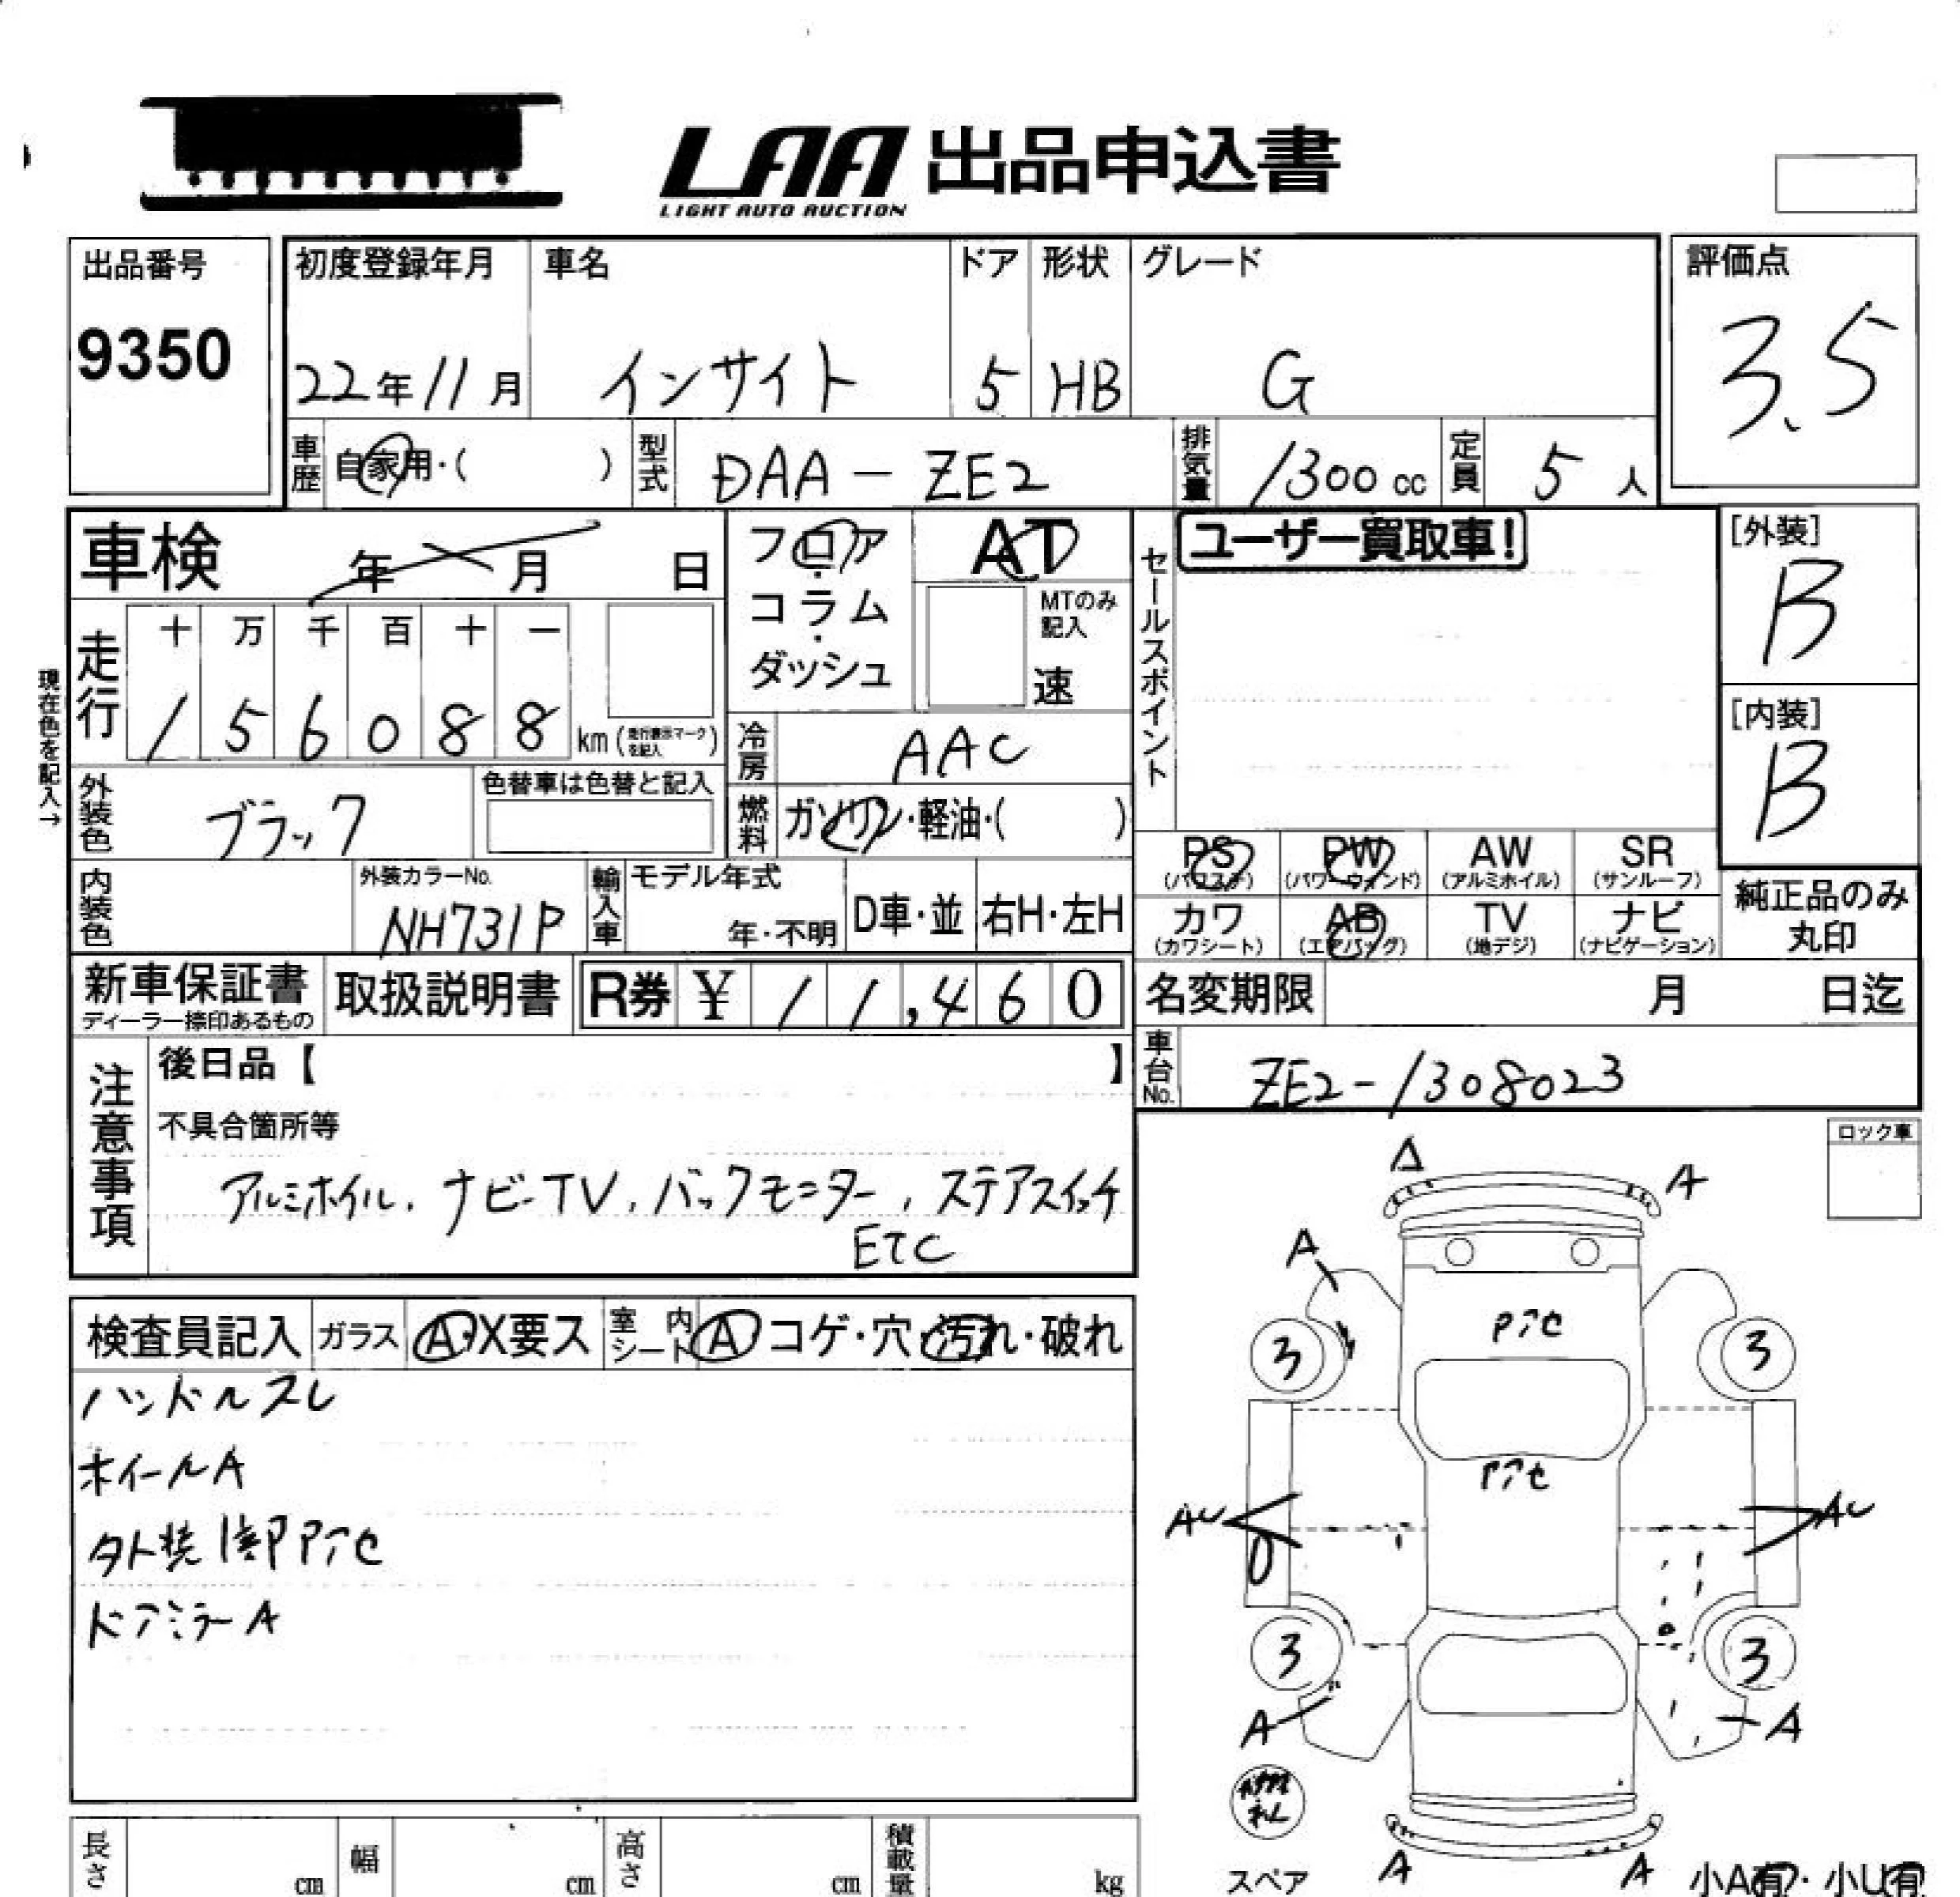 LAA 出品申込書
LIGHT AUTO AUCTION
出品番号
9350
初度登録年月
22年11月
車名
インサイト
ドア
5
形状
HB
グレード
G
評価点
3.5
車歴
自家用・( )
型式
DAA-ZE2
排気量
1300 cc
定員
5 人
車検 年 月 日
フロア・コラム・ダッシュ
AT
MTのみ記入
速
セールスポイント
ユーザー買取車!
[外装]
B
[内装]
B
現在色を記入→
走行
十 万 千 百 十 一
1 5 6 0 8 8 km (走行表示マークを記入)
冷房
AAC
外装色
ブラック
色替車は色替と記入
燃料
ガソリン・軽油・( )
PS
(パワステ)
PW
(パワーウィンド)
AW
(アルミホイル)
SR
(サンルーフ)
カワ
(カワシート)
AB
(エアバッグ)
TV
(地デジ)
ナビ
(ナビゲーション)
純正品のみ
丸印
内装色
外装カラーNo.
NH731P
輸入車
モデル年式
年・不明
D車・並
右H・左H
新車保証書
ディーラー捺印あるもの
取扱説明書
R券 ¥ 11,460
名変期限 月 日迄
車台No.
ZE2-1308023
注意事項
後日品【 】
不具合箇所等
アルミホイル、ナビ-TV、バックモニター、ステアスイッチ
ETC
ロック車
検査員記入
ガラス A・X要ス
室内シート A コゲ・穴・汚れ・破れ
ハンドルスレ
ホイールA
外装1部Pアセ
ドアミラーA
A
A
A
Pアセ
3
3
Pアセ
AU
AU
3
3
A
A
スペア
A
A
小A有・小U有
長さ cm
幅 cm
高さ cm
積載量 kg